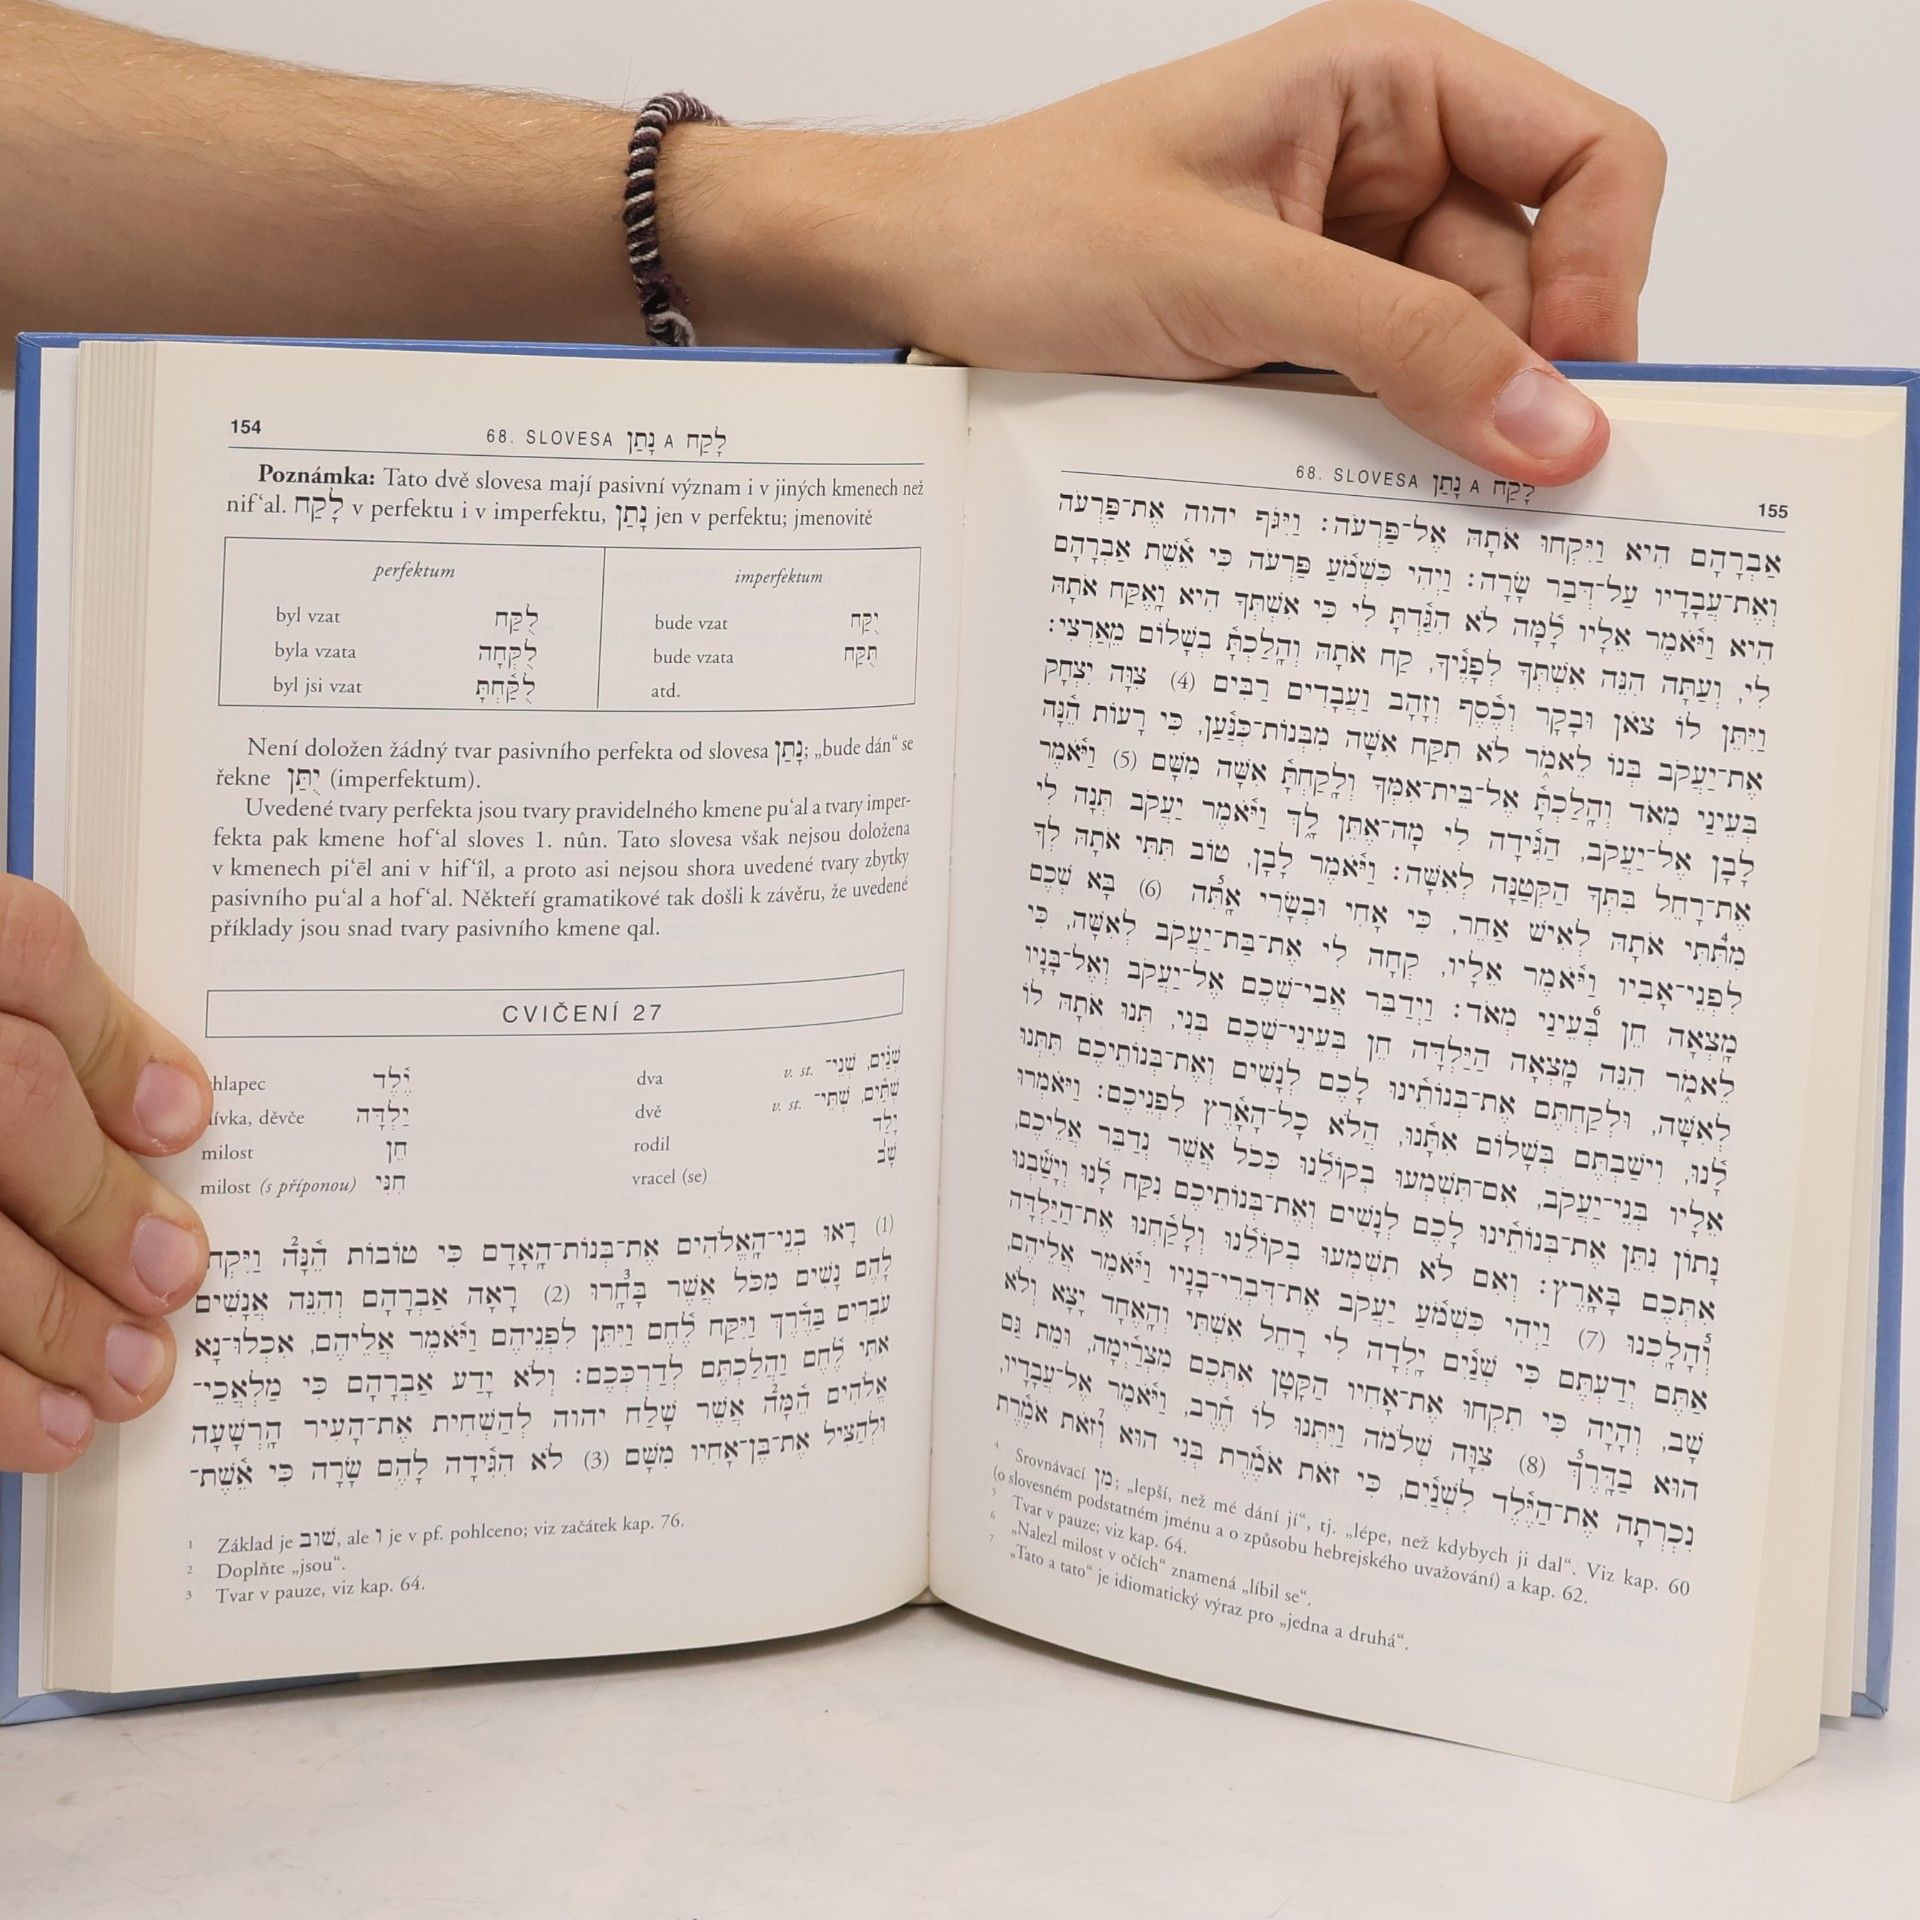 154
68. SLOVESA נָתַן A לָקַח
Poznámka: Tato dvě slovesa mají pasivní význam i v jiných kmenech než
nif‘al. לָקַח v perfektu i v imperfektu, נָתַן jen v perfektu; jmenovitě
perfektum imperfektum
byl vzat לֻקַּח bude vzat יֻקַּח
byla vzata לֻקְּחָה bude vzata תֻּקַּח
byl jsi vzat לֻקַּ֫חְתָּ atd.
Není doložen žádný tvar pasivního perfekta od slovesa נָתַן; „bude dán“ se
řekne יֻתַּן (imperfektum).
Uvedené tvary perfekta jsou tvary pravidelného kmene pu‘al a tvary imper-
fekta pak kmene hof‘al sloves 1. nûn. Tato slovesa však nejsou doložena
v kmenech pi‘ēl ani v hif‘îl, a proto asi nejsou shora uvedené tvary zbytky
pasivního pu‘al a hof‘al. Někteří gramatikové tak došli k závěru, že uvedené
příklady jsou snad tvary pasivního kmene qal.
CVIČENÍ 27
hlapec יֶ֫לֶד dva שְׁנַ֫יִם, שְׁנֵי־ v. st.
ívka, děvče יַלְדָּה dvě שְׁתַּ֫יִם, שְׁתֵּי־ v. st.
milost חֵן rodil יָלַד
milost (s příponou) חִנִּי vracel (se) שָׁב
(1) רָאוּ בְנֵי־הָאֱלֹהִים אֶת־בְּנוֹת־הָאָדָם כִּי טוֹבוֹת הֵ֫נָּה² וַיִּקְח
לָהֶם נָשִׁים מִכֹּל אֲשֶׁר בָּחָ֫רוּ³ (2) רָאָה אַבְרָהָם וְהִנֵּה אֲנָשִׁים
עֹבְרִים בַּדֶּ֫רֶךְ וַיִּקַּח לֶ֫חֶם וַיִּתֵּן לִפְנֵיהֶם וַיֹּ֫אמֶר אֲלֵיהֶם, אִכְלוּ־נָא
אִתִּי לֶ֫חֶם וַהֲלַכְתֶּם לְדַרְכְּכֶם: וְלֹא יָדַע אַבְרָהָם כִּי מַלְאֲכֵי־
אֱלֹהִים הֵ֫מָּה² אֲשֶׁר שָׁלַח יהוה לְהַשְׁחִית אֶת־הָעִיר הָרְשָׁעָה
וּלְהַצִּיל אֶת־בֶּן־אָחִיו מִשָּׁם (3) לֹא הִגִּ֫ידָה לָהֶם שָׂרָה כִּי אֵ֫שֶׁת־
1 Základ je שׁוּב, ale ו je v pf. pohlceno; viz začátek kap. 76.
2 Doplňte „jsou“.
3 Tvar v pauze, viz kap. 64.
68. SLOVESA נָתַן A לָקַח
155
אַבְרָהָם הִיא וַיִּקְחוּ אֹתָהּ אֶל־פַּרְעֹה: וַיִּגֹּף יהוה אֶת־פַּרְעֹה
וְאֶת־עֲבָדָיו עַל־דְּבַר שָׂרָה: וַיְהִי כִּשְׁמֹ֫עַ פַּרְעֹה כִּי אֵ֫שֶׁת אַבְרָהָם
הִיא וַיֹּ֫אמֶר אֵלָיו לָ֫מָּה לֹא הִגַּ֫דְתָּ לִי כִּי אִשְׁתְּךָ הִיא וָאֶקַּח אֹתָהּ
לִי, וְעַתָּה הִנֵּה אִשְׁתְּךָ לְפָנֶ֫יךָ, קַח אֹתָהּ וְהָלַכְתָּ֫ בְשָׁלוֹם מֵאַרְצִי:
וַיִּתֵּן לוֹ צֹאן וּבָקָר וְכֶ֫סֶף וְזָהָב וַעֲבָדִים רַבִּים (4) צִוָּה יִצְחָק
אֶת־יַעֲקֹב בְּנוֹ לֵאמֹר לֹא תִקַּח אִשָּׁה מִבְּנוֹת־כְּנַ֫עַן, כִּי רָעוֹת הֵ֫נָּה
בְּעֵינַי מְאֹד וְהָלַכְתָּ֫ אֶל־בֵּית־אִמְּךָ וְלָקַחְתָּ֫ אִשָּׁה מִשָּׁם (5) וַיֹּ֫אמֶר
לָבָן אֶל־יַעֲקֹב, הַגִּ֫ידָה לִי מָה־אֶתֵּן לָךְ וַיֹּ֫אמֶר יַעֲקֹב תְּנָה לִי
אֶת־רָחֵל בִּתְּךָ הַקְּטַנָּה לְאִשָּׁה: וַיֹּ֫אמֶר לָבָן, טוֹב תִּתִּי אֹתָהּ לְךָ
מִתִּתִּי⁴ אֹתָהּ לְאִישׁ אַחֵר, כִּי אָחִי וּבְשָׂרִי אָ֫תָּה⁵ (6) בָּא שְׁכֶם
לִפְנֵי־אָבִיו וַיֹּ֫אמֶר אֵלָיו, קְחָה לִי אֶת־בַּת־יַעֲקֹב לְאִשָּׁה, כִּי
מָצְאָה חֵן בְּעֵינַי⁶ מְאֹד: וַיְדַבֵּר אֲבִי־שְׁכֶם אֶל־יַעֲקֹב וְאֶל־בָּנָיו
לֵאמֹר הִנֵּה מָצְאָה הַיַּלְדָּה חֵן בְּעֵינֵי־שְׁכֶם בְּנִי, תְּנוּ אֹתָהּ לוֹ
לְאִשָּׁה, וּלְקַחְתֶּם אֶת־בְּנוֹתֵ֫ינוּ לָכֶם לְנָשִׁים וְאֶת־בְּנוֹתֵיכֶם תִּתְּנוּ
לָ֫נוּ, וִישַׁבְתֶּם בְּשָׁלוֹם אִתָּ֫נוּ, הֲלֹא כָל־הָאָ֫רֶץ לִפְנֵיכֶם: וַיֹּאמְרוּ
אֵלָיו בְּנֵי־יַעֲקֹב, אִם־תִּשְׁמְעוּ בְקוֹלֵ֫נוּ כְּכֹל אֲשֶׁר נְדַבֵּר אֲלֵיכֶם,
נָתוֹן נִתֵּן אֶת־בְּנוֹתֵ֫ינוּ לָכֶם לְנָשִׁים וְאֶת־בְּנוֹתֵיכֶם נִקַּח לָ֫נוּ וְיָשַׁ֫בְנוּ
אִתְּכֶם בָּאָ֫רֶץ: וְאִם לֹא תִשְׁמְעוּ בְקוֹלֵ֫נוּ וְלָקַ֫חְנוּ אֶת־הַיַּלְדָּה
וְהָלָ֫כְנוּ⁵ (7) וַיְהִי כִּשְׁמֹ֫עַ יַעֲקֹב אֶת־דִּבְרֵי־בָנָיו וַיֹּ֫אמֶר אֲלֵיהֶם,
אַתֶּם יְדַעְתֶּם כִּי שְׁנַ֫יִם יָלְדָה לִּי רָחֵל אִשְׁתִּי וְהָאֶחָד יָצָא וְלֹא
שָׁב, וְהָיָה כִּי תִקְחוּ אֶת־אָחִיו הַקָּטָן אִתְּכֶם מִצְרַ֫יְמָה, וּמֵת גַּם
הוּא בַּדָּ֫רֶךְ⁵ (8) צִוָּה שְׁלֹמֹה וַיִּתְּנוּ לוֹ חֶ֫רֶב, וַיֹּ֫אמֶר אֶל־עֲבָדָיו,
נִכְרְתָה אֶת־הַיֶּ֫לֶד לִשְׁנַ֫יִם, כִּי זֹאת אֹמֶ֫רֶת בְּנִי הוּא וְזֹאת⁷ אֹמֶ֫רֶת
4 Srovnávací מִן; „lepší, než mé dání jí“, tj. „lépe, než kdybych ji dal“. Viz kap. 60
(o slovesném podstatném jménu a o způsobu hebrejského uvažování) a kap. 62.
5 Tvar v pauze; viz kap. 64.
6 „Nalezl milost v očích“ znamená „líbil se“.
7 „Tato a tato“ je idiomatický výraz pro „jedna a druhá“.